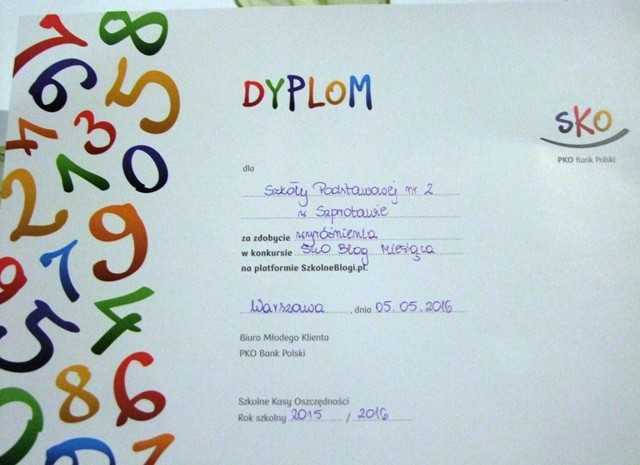 DYPLOM
SKO
PKO Bank Polski
dla
Szkoły Podstawowej nr 2
w Szprotawie
za zdobycie wyróżnienia
w konkursie SKO Blog Miesiąca
na platformie SzkolneBlogi.pl.
Warszawa, dnia 05.05.2016
Biuro Młodego Klienta
PKO Bank Polski
Szkolne Kasy Oszczędności
Rok szkolny 2015 / 2016